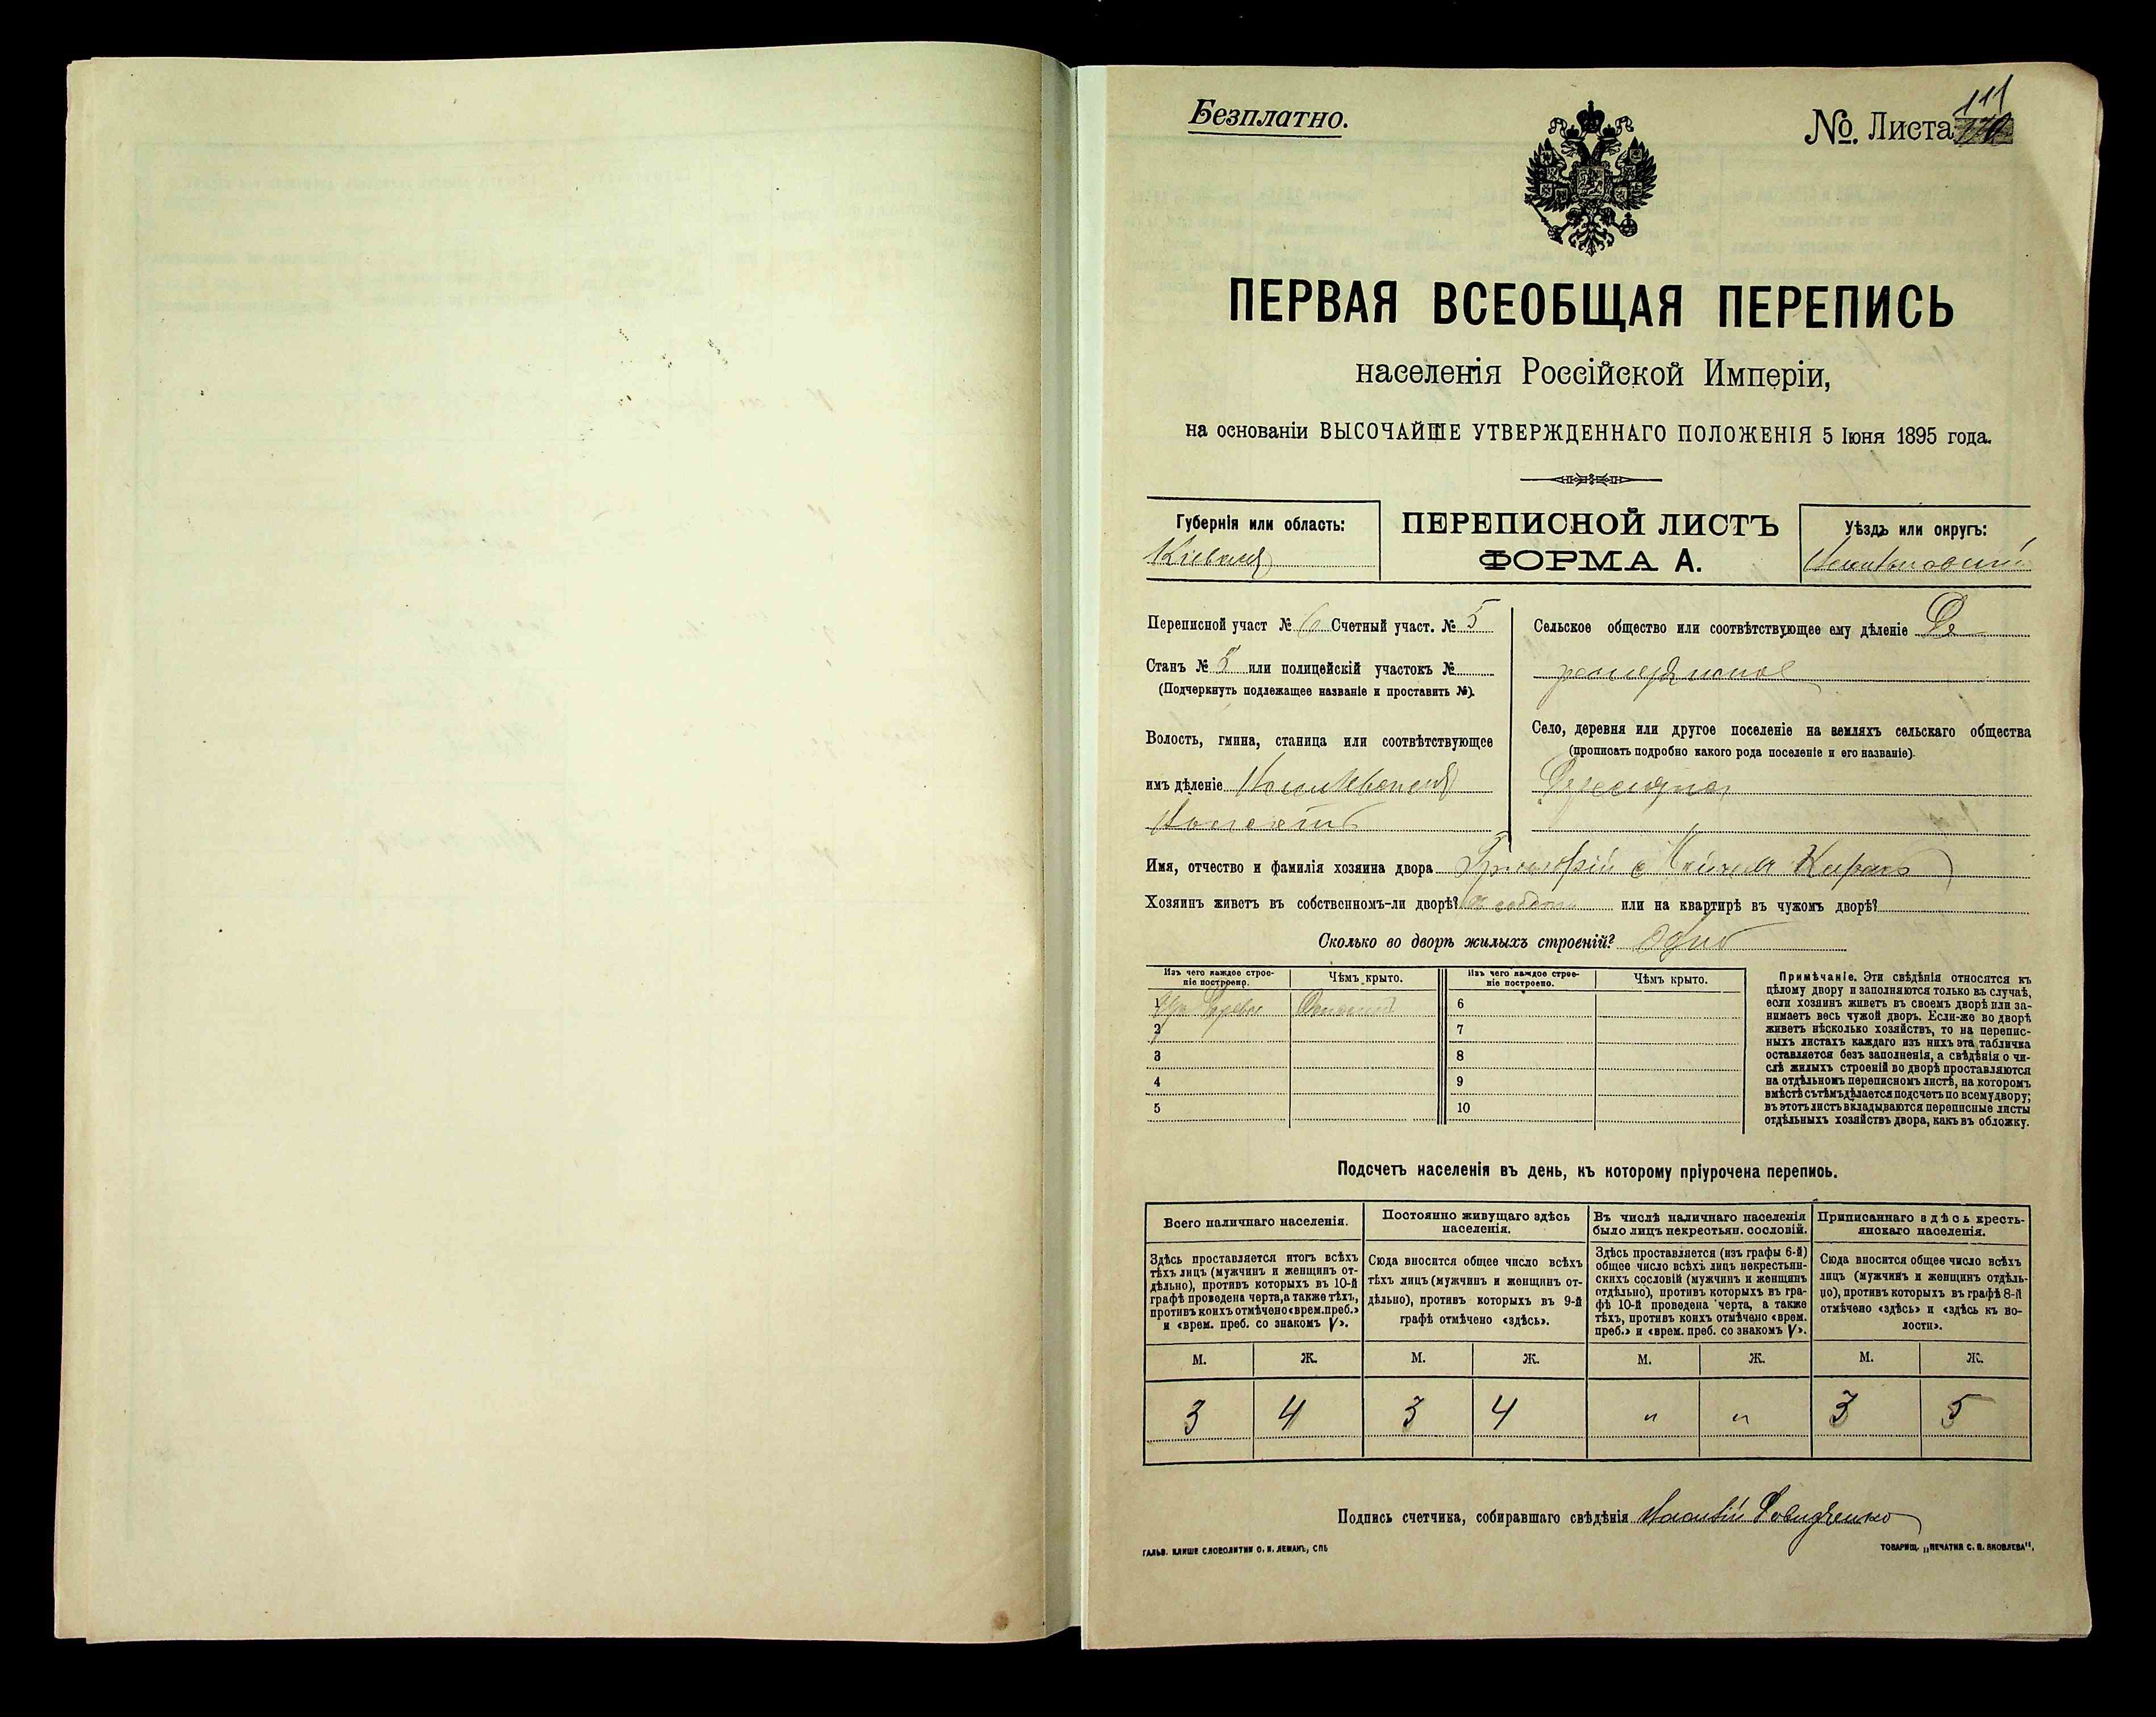 Безплатно.
№. Листа 111
ПЕРВАЯ ВСЕОБЩАЯ ПЕРЕПИСЬ
населенія Россійской Имперіи,
на основаніи ВЫСОЧАЙШЕ УТВЕРЖДЕННАГО ПОЛОЖЕНІЯ 5 Іюня 1895 года.
Губернія или область:
Кіевская
ПЕРЕПИСНОЙ ЛИСТЪ
ФОРМА А.
Уѣздъ или округъ:
Переписной участ № 6 Счетный участ. № 5
Станъ № 5 или полицейскій участокъ №
(Подчеркнуть подлежащее названіе и проставить №).
Волость, гмина, станица или соотвѣтствующее
имъ дѣленіе
Сельское общество или соотвѣтствующее ему дѣленіе
Село, деревня или другое поселеніе на земляхъ сельскаго общества
(прописать подробно какого рода поселеніе и его названіе).
Имя, отчество и фамилія хозяина двора Григорій
Хозяинъ живетъ въ собственномъ-ли дворѣ? или на квартирѣ въ чужомъ дворѣ?
Сколько во дворѣ жилыхъ строеній? Одно
Изъ чего каждое строе-
ніе построено.
Чѣмъ крыто.
Изъ чего каждое строе-
ніе построено.
Чѣмъ крыто.
1
2
3
4
5
6
7
8
9
10
Примѣчаніе. Эти свѣдѣнія относятся къ
цѣлому двору и заполняются только въ случаѣ,
если хозяинъ живетъ въ своемъ дворѣ или за-
нимаетъ весь чужой дворъ. Если-же во дворѣ
живетъ нѣсколько хозяйствъ, то на перепис-
ныхъ листахъ каждаго изъ нихъ эта табличка
оставляется безъ заполненія, а свѣдѣнія о чи-
слѣ жилыхъ строеній во дворѣ проставляются
на отдѣльномъ переписномъ листѣ, на которомъ
вмѣстѣ съ тѣмъ дѣлается подсчетъ по всему двору;
въ этотъ листъ вкладываются переписные листы
отдѣльныхъ хозяйствъ двора, какъ въ обложку.
Подсчетъ населенія въ день, къ которому пріурочена перепись.
Всего наличнаго населенія.
Здѣсь проставляется итогъ всѣхъ
тѣхъ лицъ (мужчинъ и женщинъ от-
дѣльно), противъ которыхъ въ 10-й
графѣ проведена черта, а также тѣхъ,
противъ коихъ отмѣчено «врем. преб.»
и «врем. преб. со знакомъ V».
Постоянно живущаго здѣсь
населенія.
Сюда вносится общее число всѣхъ
тѣхъ лицъ (мужчинъ и женщинъ от-
дѣльно), противъ которыхъ въ 9-й
графѣ отмѣчено «здѣсь».
Въ числѣ наличнаго населенія
было лицъ некрестьян. сословій.
Здѣсь проставляется (изъ графы 6-й)
общее число всѣхъ лицъ некрестьян-
скихъ сословій (мужчинъ и женщинъ
отдѣльно), противъ которыхъ въ гра-
фѣ 10-й проведена черта, а также
тѣхъ, противъ коихъ отмѣчено «врем.
преб.» и «врем. преб. со знакомъ V».
Приписаннаго здѣсь кресть-
янскаго населенія.
Сюда вносится общее число всѣхъ
лицъ (мужчинъ и женщинъ отдѣль-
но), противъ которыхъ въ графѣ 8-й
отмѣчено «здѣсь» и «здѣсь къ во-
лости».
М. Ж. М. Ж. М. Ж. М. Ж.
3 4 3 4 " " 3 5
Подпись счетчика, собиравшаго свѣдѣнія
ГАЛЬВ. КЛИШЕ СЛОВОЛИТНИ О. И. ЛЕМАНЪ, СПБ
ТОВАРИЩ. „ПЕЧАТНЯ С. П. ЯКОВЛЕВА".